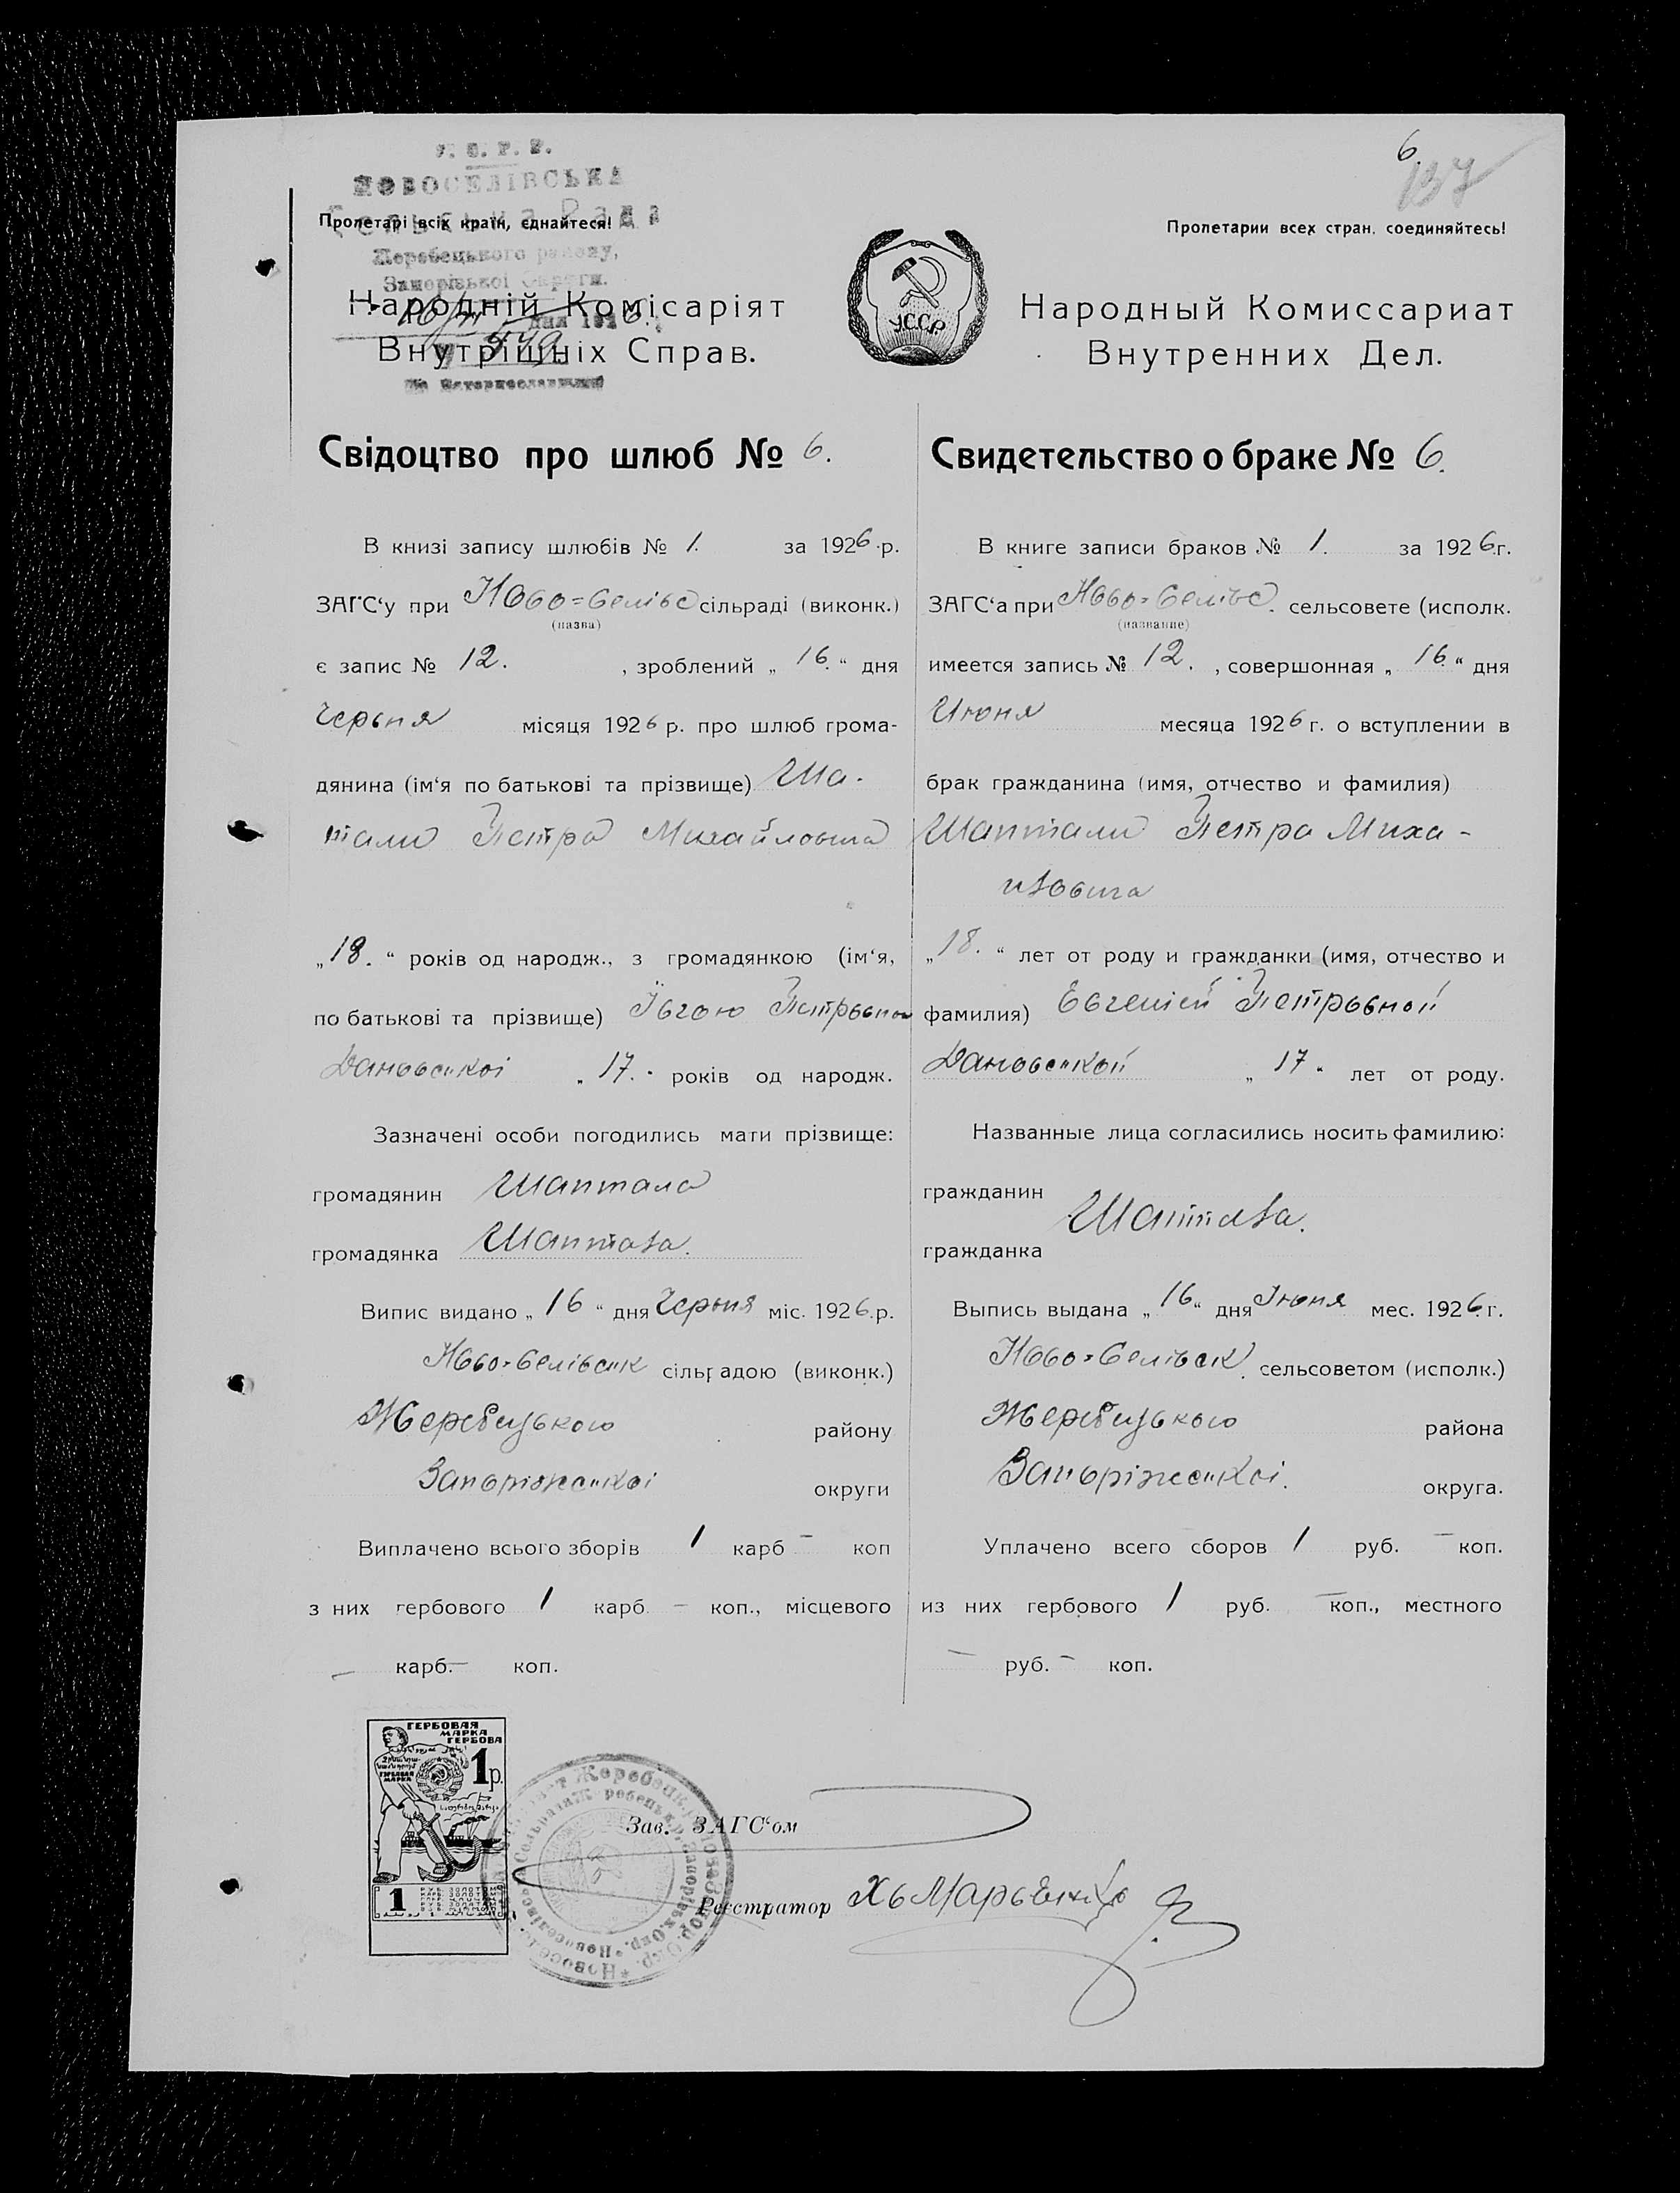 6.
137
У. С. Р. Р.
НОВОСЕЛІВСЬКА
Сільська Рада
Жеребецького району,
Запорізької Округи.
Пролетарі всіх країн, єднайтеся!
Народній Комісаріят
Внутрішніх Справ.
У.С.С.Р.
Пролетарии всех стран, соединяйтесь!
Народный Комиссариат
Внутренних Дел.
Свідоцтво про шлюб № 6.
В книзі запису шлюбів № 1. за 1926 р.
ЗАГС‘у при Ново=Селівс сільраді (виконк.)
(назва)
є запис № 12. , зроблений „ 16. “ дня
Червня місяця 1926 р. про шлюб грома-
дянина (ім‘я по батькові та прізвище) Ша-
тали Петра Михайловича
„18. “ років од народж., з громадянкою (ім‘я,
по батькові та прізвище) Ївгою Петровною
Дановської „ 17. “ років од народж.
Зазначені особи погодились мати прізвище:
громадянин Шаптала
громадянка Шаптала.
Випис видано „ 16 “ дня Червня міс. 1926.р.
Ново=Селівськ сільрадою (виконк.)
Жеребецького району
Запоріжської округи
Виплачено всього зборів 1 карб – коп
з них гербового 1 карб. – коп., місцевого
– карб. – коп.
Свидетельство о браке № 6.
В книге записи браков № 1. за 1926г.
ЗАГС‘а при Ново=Селівс. сельсовете (исполк.
(название)
имеется запись № 12. , совершонная „ 16. “ дня
Июня месяца 1926 г. о вступлении в
брак гражданина (имя, отчество и фамилия)
Шаптали Петра Миха-
йловича
„18. “ лет от роду и гражданки (имя, отчество и
фамилия) Евгенией Петровной
Дановской „ 17 “ лет от роду.
Названные лица согласились носить фамилию:
гражданин
Шаптала.
гражданка
Выпись выдана „ 16 “ дня Июня мес. 1926 г.
Ново=Селівськ. сельсоветом (исполк.)
Жеребецького района
Запоріжської. округа.
Уплачено всего сборов 1 руб. – коп.
из них гербового 1 руб. – коп., местного
– руб. – коп.
ГЕРБОВАЯ
МАРКА
ГЕРБОВА
1р.
1
Зав. ЗАГС‘ом
Реєстратор